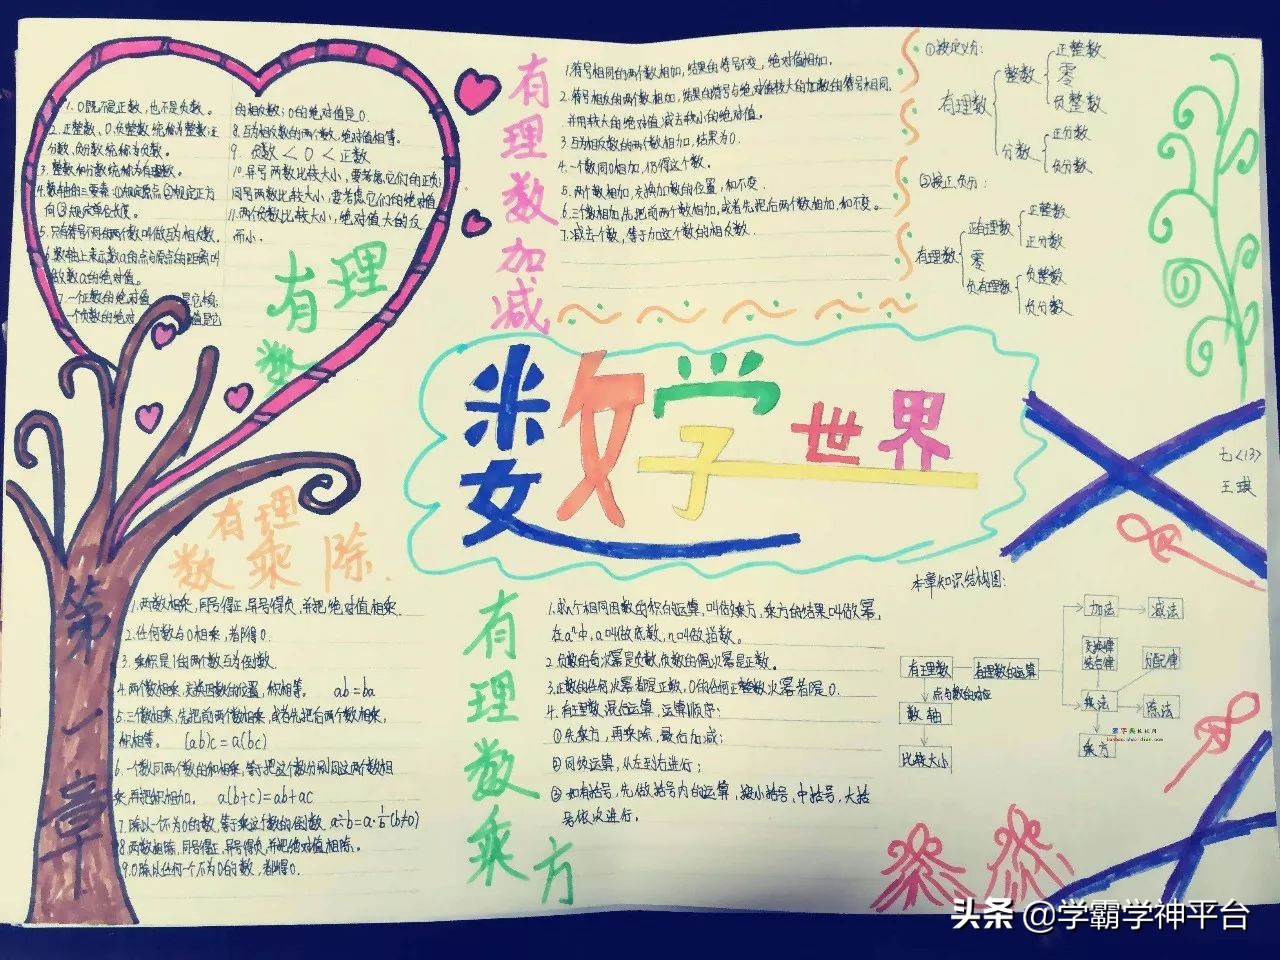 1. 0既不是正数，也不是负数。
2. 正整数、0、负整数统称为整数；正
分数、负分数统称为分数。
3. 整数和分数统称为有理数。
4. 数轴的三要素：①规定原点②规定正方
向③规定单位长度。
5. 只有符号不同的两个数叫做互为相反数。
6. 数轴上表示数a的点与原点的距离叫
做数a的绝对值。
7. 一个正数的绝对
一个负数的绝对
的相反数；0的绝对值是0.
8. 互为相反数的两个数，绝对值相等。
9. 负数<0<正数
10. 异号两数比较大小，要考虑它们的正负；
同号两数比较大小，要考虑它们的绝对值
11. 两个负数比较大小，绝对值大的反
而小.
有理数
有理数加减
1. 符号相同的两个数相加，结果的符号不变，绝对值相加.
2. 符号相反的两个数相加，结果的符号与绝对值较大的加数的符号相同，
并用较大的绝对值减去较小的绝对值。
3. 互为相反数的两个数相加，结果为0.
4. 一个数同0相加，仍得这个数。
5. 两个数相加，交换加数的位置，和不变.
6. 三个数相加，先把前两个数相加，或者先把后两个数相加，和不变。
7. 减去一个数，等于加这个数的相反数.
①按定义分:
有理数
整数
正整数
零
负整数
分数
正分数
负分数
②按正负分:
有理数
正有理数
正整数
正分数
零
负有理数
负整数
负分数
数学世界
七<13>
王琪
第一章
有理数乘除.
1. 两数相乘，同号得正，异号得负，并把绝对值相乘.
2. 任何数与0相乘，都得0.
3. 乘积是1的两个数互为倒数.
4. 两个数相乘，交换因数的位置，积相等。 ab=ba
5. 三个数相乘，先把前两个数相乘，或者先把后两个数相乘，
积相等。 (ab)c=a(bc)
6. 一个数同两个数的和相乘，等于把这个数分别同这两个数相
乘，再把积相加. a(b+c)=ab+ac
7. 除以一个不为0的数，等于乘这个数的倒数. a÷b=a·1/b(b≠0)
8. 两数相除，同号得正，异号得负，并把绝对值相除。
9. 0除以任何一个不为0的数，都得0.
有理数乘方
1. 求n个相同因数的积的运算，叫做乘方，乘方的结果叫做幂，
在aⁿ中，a叫做底数，n叫做指数。
2. 负数的奇次幂是负数，负数的偶次幂是正数。
3. 正数的任何次幂都是正数，0的任何正整数次幂都是0.
4. 有理数混合运算，运算顺序：
①先乘方，再乘除，最后加减；
②同级运算，从左到右进行；
③如有括号，先做括号内的运算，按小括号、中括号、大括
号依次进行.
本章知识结构图:
有理数
有理数的运算
点与数的对应
数轴
比较大小
加法
减法
交换律
结合律
分配律
乘法
除法
乘方
头条 @学霸学神平台